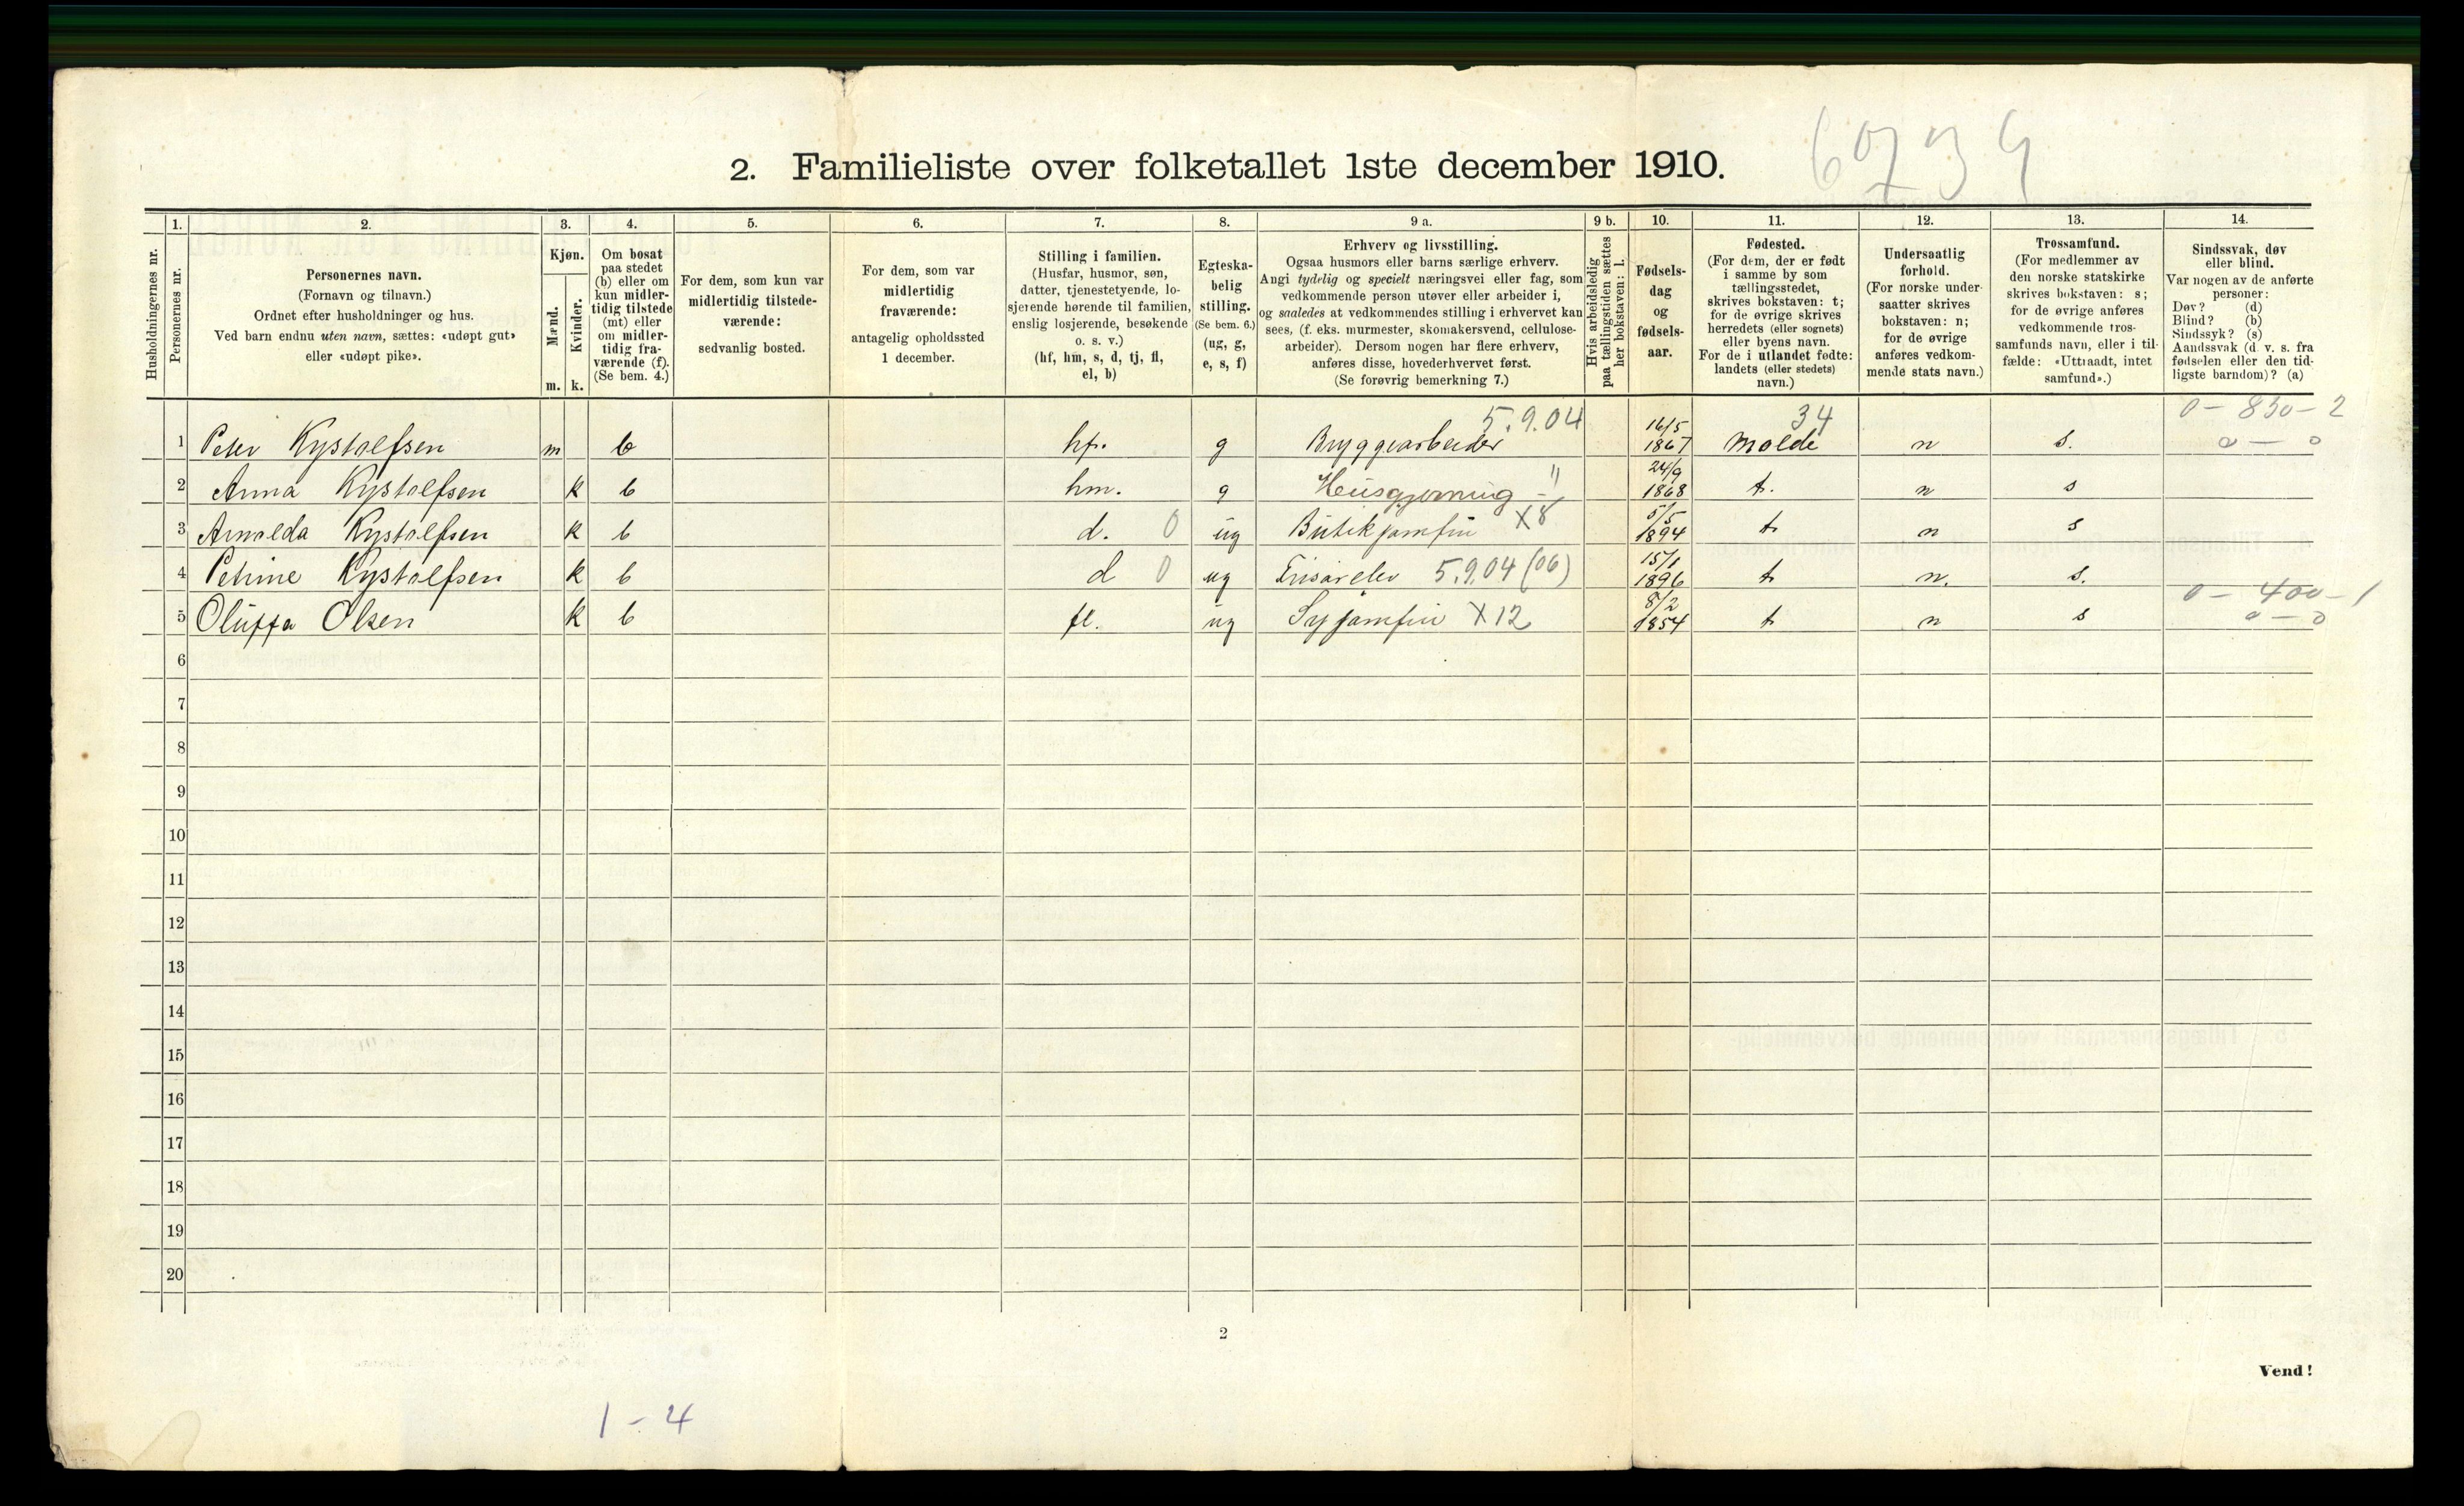 6734
2. Familieliste over folketallet 1ste december 1910.
Husholdningernes nr.
1.
Personernes nr.
2.
Personernes navn.
(Fornavn og tilnavn.)
Ordnet efter husholdninger og hus.
Ved barn endnu uten navn, sættes: «udøpt gut»
eller «udøpt pike».
3.
Kjøn.
Mænd.
Kvinder.
m. k.
4.
Om bosat
paa stedet
(b) eller om
kun midler-
tidig tilstede
(mt) eller
om midler-
tidig fra-
værende (f).
(Se bem. 4.)
5.
For dem, som kun var
midlertidig tilstede-
værende:
sedvanlig bosted.
6.
For dem, som var
midlertidig
fraværende:
antagelig opholdssted
1 december.
7.
Stilling i familien.
(Husfar, husmor, søn,
datter, tjenestetyende, lo-
sjerende hørende til familien,
enslig losjerende, besøkende
o. s. v.)
(hf, hm, s, d, tj, fl,
el, b)
8.
Egteska-
belig
stilling.
(Se bem. 6.)
(ug, g,
e, s, f)
9 a.
Erhverv og livsstilling.
Ogsaa husmors eller barns særlige erhverv.
Angi tydelig og specielt næringsvei eller fag, som
vedkommende person utøver eller arbeider i,
og saaledes at vedkommendes stilling i erhvervet kan
sees, (f. eks. murmester, skomakersvend, cellulose-
arbeider). Dersom nogen har flere erhverv,
anføres disse, hovederhvervet først.
(Se forøvrig bemerkning 7.)
9 b.
Hvis arbeidsledig
paa tællingstiden sættes
her bokstaven: l.
10.
Fødsels-
dag
og
fødsels-
aar.
11.
Fødested.
(For dem, der er født
i samme by som
tællingsstedet,
skrives bokstaven: t;
for de øvrige skrives
herredets (eller sognets)
eller byens navn.
For de i utlandet fødte:
landets (eller stedets)
navn.)
12.
Undersaatlig
forhold.
(For norske under-
saatter skrives
bokstaven: n;
for de øvrige
anføres vedkom-
mende stats navn.)
13.
Trossamfund.
(For medlemmer av
den norske statskirke
skrives bokstaven: s;
for de øvrige anføres
vedkommende tros-
samfunds navn, eller i til-
fælde: «Uttraadt, intet
samfund».)
14.
Sindssvak, døv
eller blind.
Var nogen av de anførte
personer:
Døv? (d)
Blind? (b)
Sindssyk? (s)
Aandssvak (d. v. s. fra
fødselen eller den tid-
ligste barndom)? (a)
5.9.04 34 0 - 830 - 2
1 Peter Kystolfsen m b hf. g Bryggearbeider 16/5 1867 Molde n s. 0 - 0
2 Anna Kystolfsen k b hm. g Husgjerning -"- 24/9 1868 t. n s
3 Arnolda Kystolfsen k b d. 0 ug Butikjomfru X8 5/5 1894 t n s
4 Petrine Kystolfsen k b d 0 ug Frisørelev 5.9.04 (06) 15/1 1896 t n. s.
0 - 400 - 1
5 Oluffa Olsen k b fl. ug Syjomfru X12 8/2 1854 t n s 0 - 0
6
7
8
9
10
11
12
13
14
15
16
17
18
19
20
2
Vend!
1 - 4